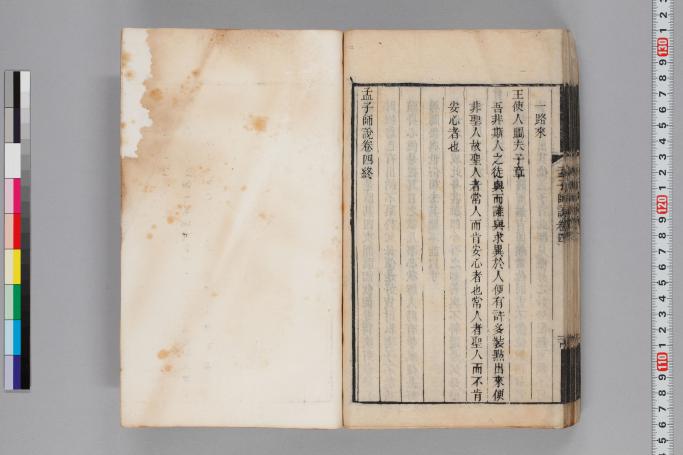 一路來
王使人瞷夫子章
吾非斯人之徒與而誰與求異於人便有許多裝點出來便
非聖人故聖人者常人而肯安心者也常人者聖人而不肯
安心者也
孟子師說卷四終
孟子師說卷四
130
120
110